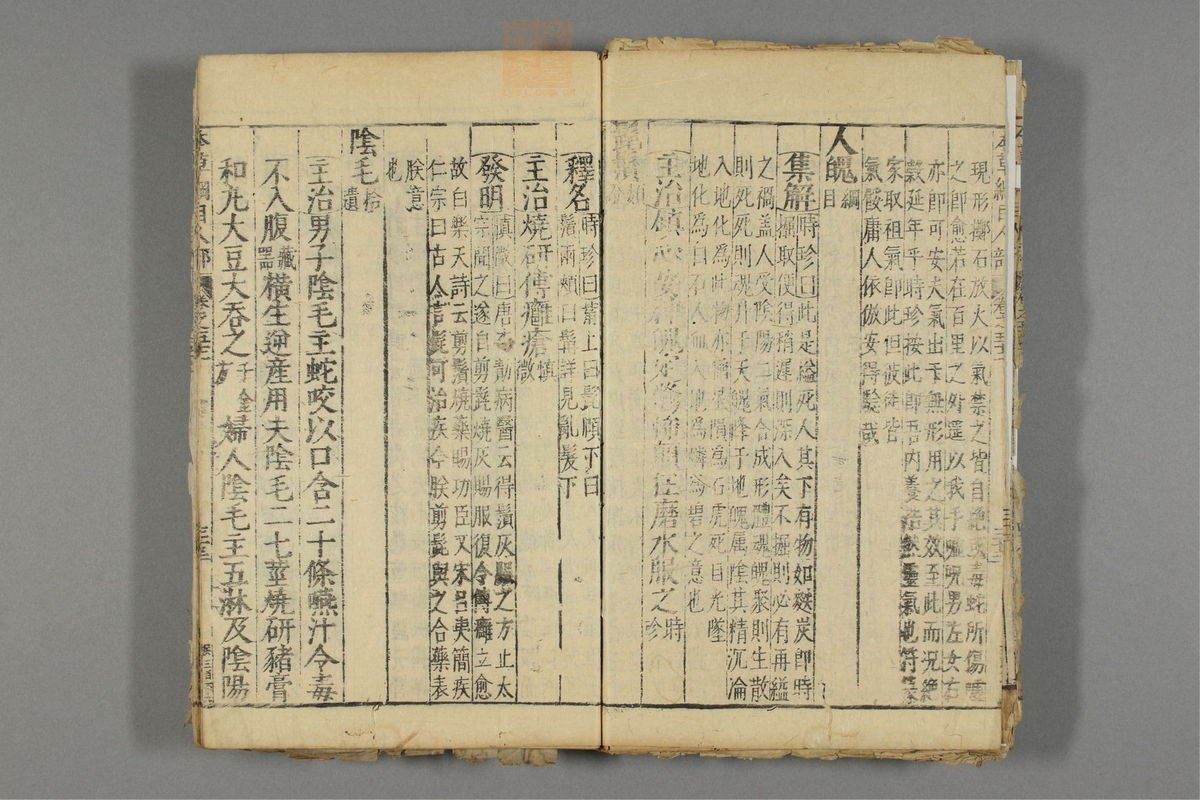 現形擲石放火以氣禁之皆自絕或毒蛇所傷噓
之即愈若在百里之外遥以我手噓呪男左女右
亦即可安夫氣出于無形用之其效至此而况絕
穀延年乎時珍按此即吾内養浩然靈氣也符篆
家取祖氣即此但彼徒皆
氣餒庸人依倣安得驗哉
人魄綱目
集解時珍曰此是縊死人其下有物如麩炭即時
掘取便得稍遲則深入矣不掘則必有再縊
之禍盖人受陰陽二氣合成形體魂魄聚則生散
則死死則魂升于天魄降于地魄属陰其精沉淪
入地化為此物亦猶星隕為石虎死目光墜
地化為白石人血入地為燐為碧之意也
主治鎮心安神魄定驚怖顛狂磨水服之時珍
髭鬚
釋名時珍曰觜上曰髭頤下曰
鬚兩頰曰髯詳見亂髮下
主治燒研傳癰瘡慎微
發明慎微曰唐李勣病醫云得鬚灰服之方止太
宗聞之遂自剪髭燒灰賜服復令傳癰立愈
故白樂天詩云剪鬚燒藥賜功臣又宋吕夷簡疾
仁宗曰古人言髭可治疾今朕剪髭與之合藥表
朕意
也
陰毛拾遺
主治男子陰毛主蛇咬以口含二十條嚥汁令毒
不入腹藏器横生逆産用夫陰毛二七莖燒研豬膏
和丸大豆大吞之千金方婦人陰毛主五淋及陰陽
本草綱目人部